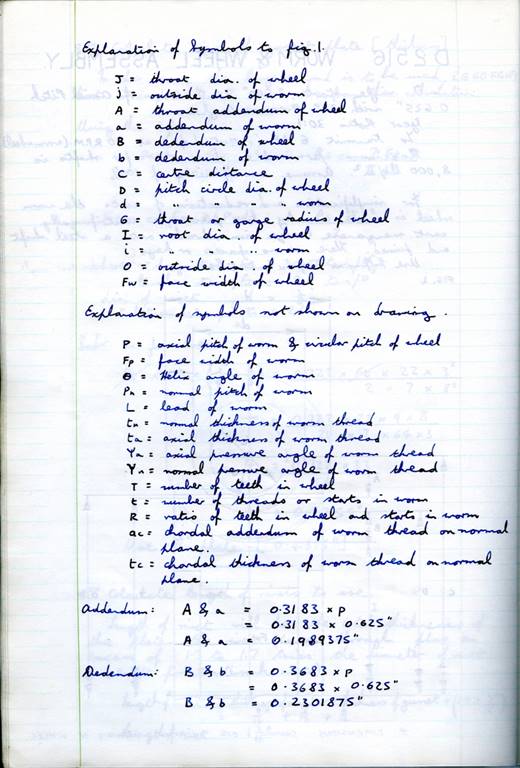 Explanation of Symbols to fig. 1.
J = throat dia. of wheel
j = outside dia of worm
A = throat addendum of wheel
a = addendum of worm
B = dedendum of wheel
b = dedendum of worm
C = centre distance
D = pitch circle dia. of wheel
d = " " " " worm
G = throat or gorge radius of wheel
I = root dia. of wheel
i = " " " worm
O = outside dia. of wheel
Fw = face width of wheel
Explanation of symbols not shown on drawing.
P = axial pitch of worm & circular pitch of wheel
Fp = face width of worm
θ = Helix angle of worm
Pn = normal pitch of worm
L = lead of worm
tn = normal thickness of worm thread
ta = axial thickness of worm thread
Ya = axial pressure angle of worm thread
Yn = normal pressure angle of worm thread
T = number of teeth in wheel
t = number of threads or starts in worm
R = ratio of teeth in wheel and starts in worm
ac = chordal addendum of worm thread on normal
plane.
tc = chordal thickness of worm thread on normal
plane.
Addendum: A & a = 0.3183 x p
= 0.3183 x 0.625"
A & a = 0.1989375"
Dedendum: B & b = 0.3683 x p
= 0.3683 x 0.625"
B & b = 0.2301875"